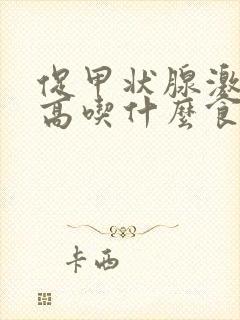 促甲状腺激
高喫什麼食
卡西